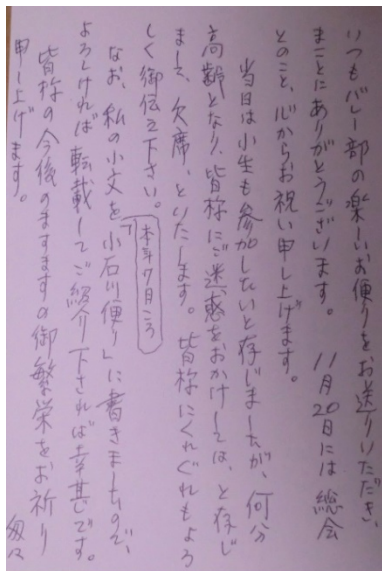 いつもバレー部の楽しいお便りをお送りいただき、
まことにありがとうございます。11月20日には総会
とのこと、心からお祝い申し上げます。
当日は小生も参加したいと存じましたが、何分
高齢となり、皆様にご迷惑をおかけしては、と存じ
まして、欠席、といたします。皆様にくれぐれもよろ
しく御伝え下さい。
本年7月ころ
なお、私の小文を「小石川便り」に書きましたので、
よろしければ転載してご紹介下されば幸甚です。
皆様の今後のますますの御繁栄をお祈り
申し上げます。
匆々